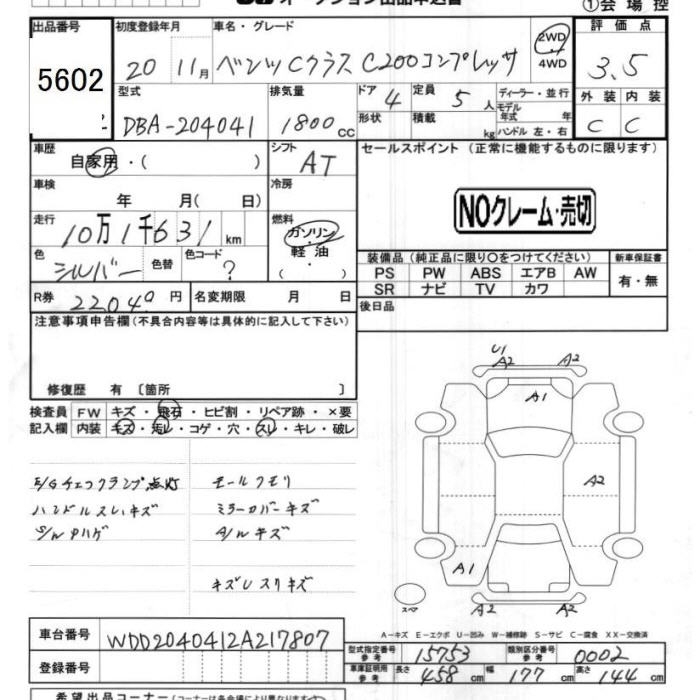 ①会場控
出品番号
5602
初度登録年月
20 11月
車名・グレード
ベンツCクラス C200コンプレッサ
2WD
4WD
評価点
3.5
型式
DBA-204041
排気量
1800 cc
ドア 4
形状
定員 5 人
積載 kg
ディーラー・並行
モデル年式 年
ハンドル 左・右
外装 内装
C C
車歴
自家用・( )
シフト
AT
セールスポイント(正常に機能するものに限ります)
NOクレーム・売切
車検
年 月( 日)
冷房
走行
10万1千631 km
燃料
ガソリン
軽油
・( )
色
シルバー
色替
色コード
?
装備品(純正品に限り○をつけてください)
新車保証書
PS PW ABS エアB AW
SR ナビ TV カワ
有・無
R券
22040 円
名変期限 月 日
後日品
注意事項申告欄(不具合内容等は具体的に記入して下さい)
修復歴 有〔箇所 〕
検査員記入欄
FW キズ・飛石・ヒビ割・リペア跡・×要
内装 キズ・汚レ・コゲ・穴・スレ・キレ・破レ
E/Gチェックランプ点灯
ハンドルスレ、キズ
S/Wタハゲ
モールクモリ
ミラーカバーキズ
A/Wキズ
キズレスリキズ
U1
A2
A2
A1
A2
A1
スペア
A2
A2
A−キズ E−エクボ U−凹み W−補修跡 S−サビ C−腐食 XX−交換済
車台番号
WDD2040412A217807
登録番号
型式指定番号
参考
15753
類別区分番号
参考
0002
車庫証明用
参考
長さ 458 cm
幅 177 cm
高さ 144 cm
希望出品コーナー